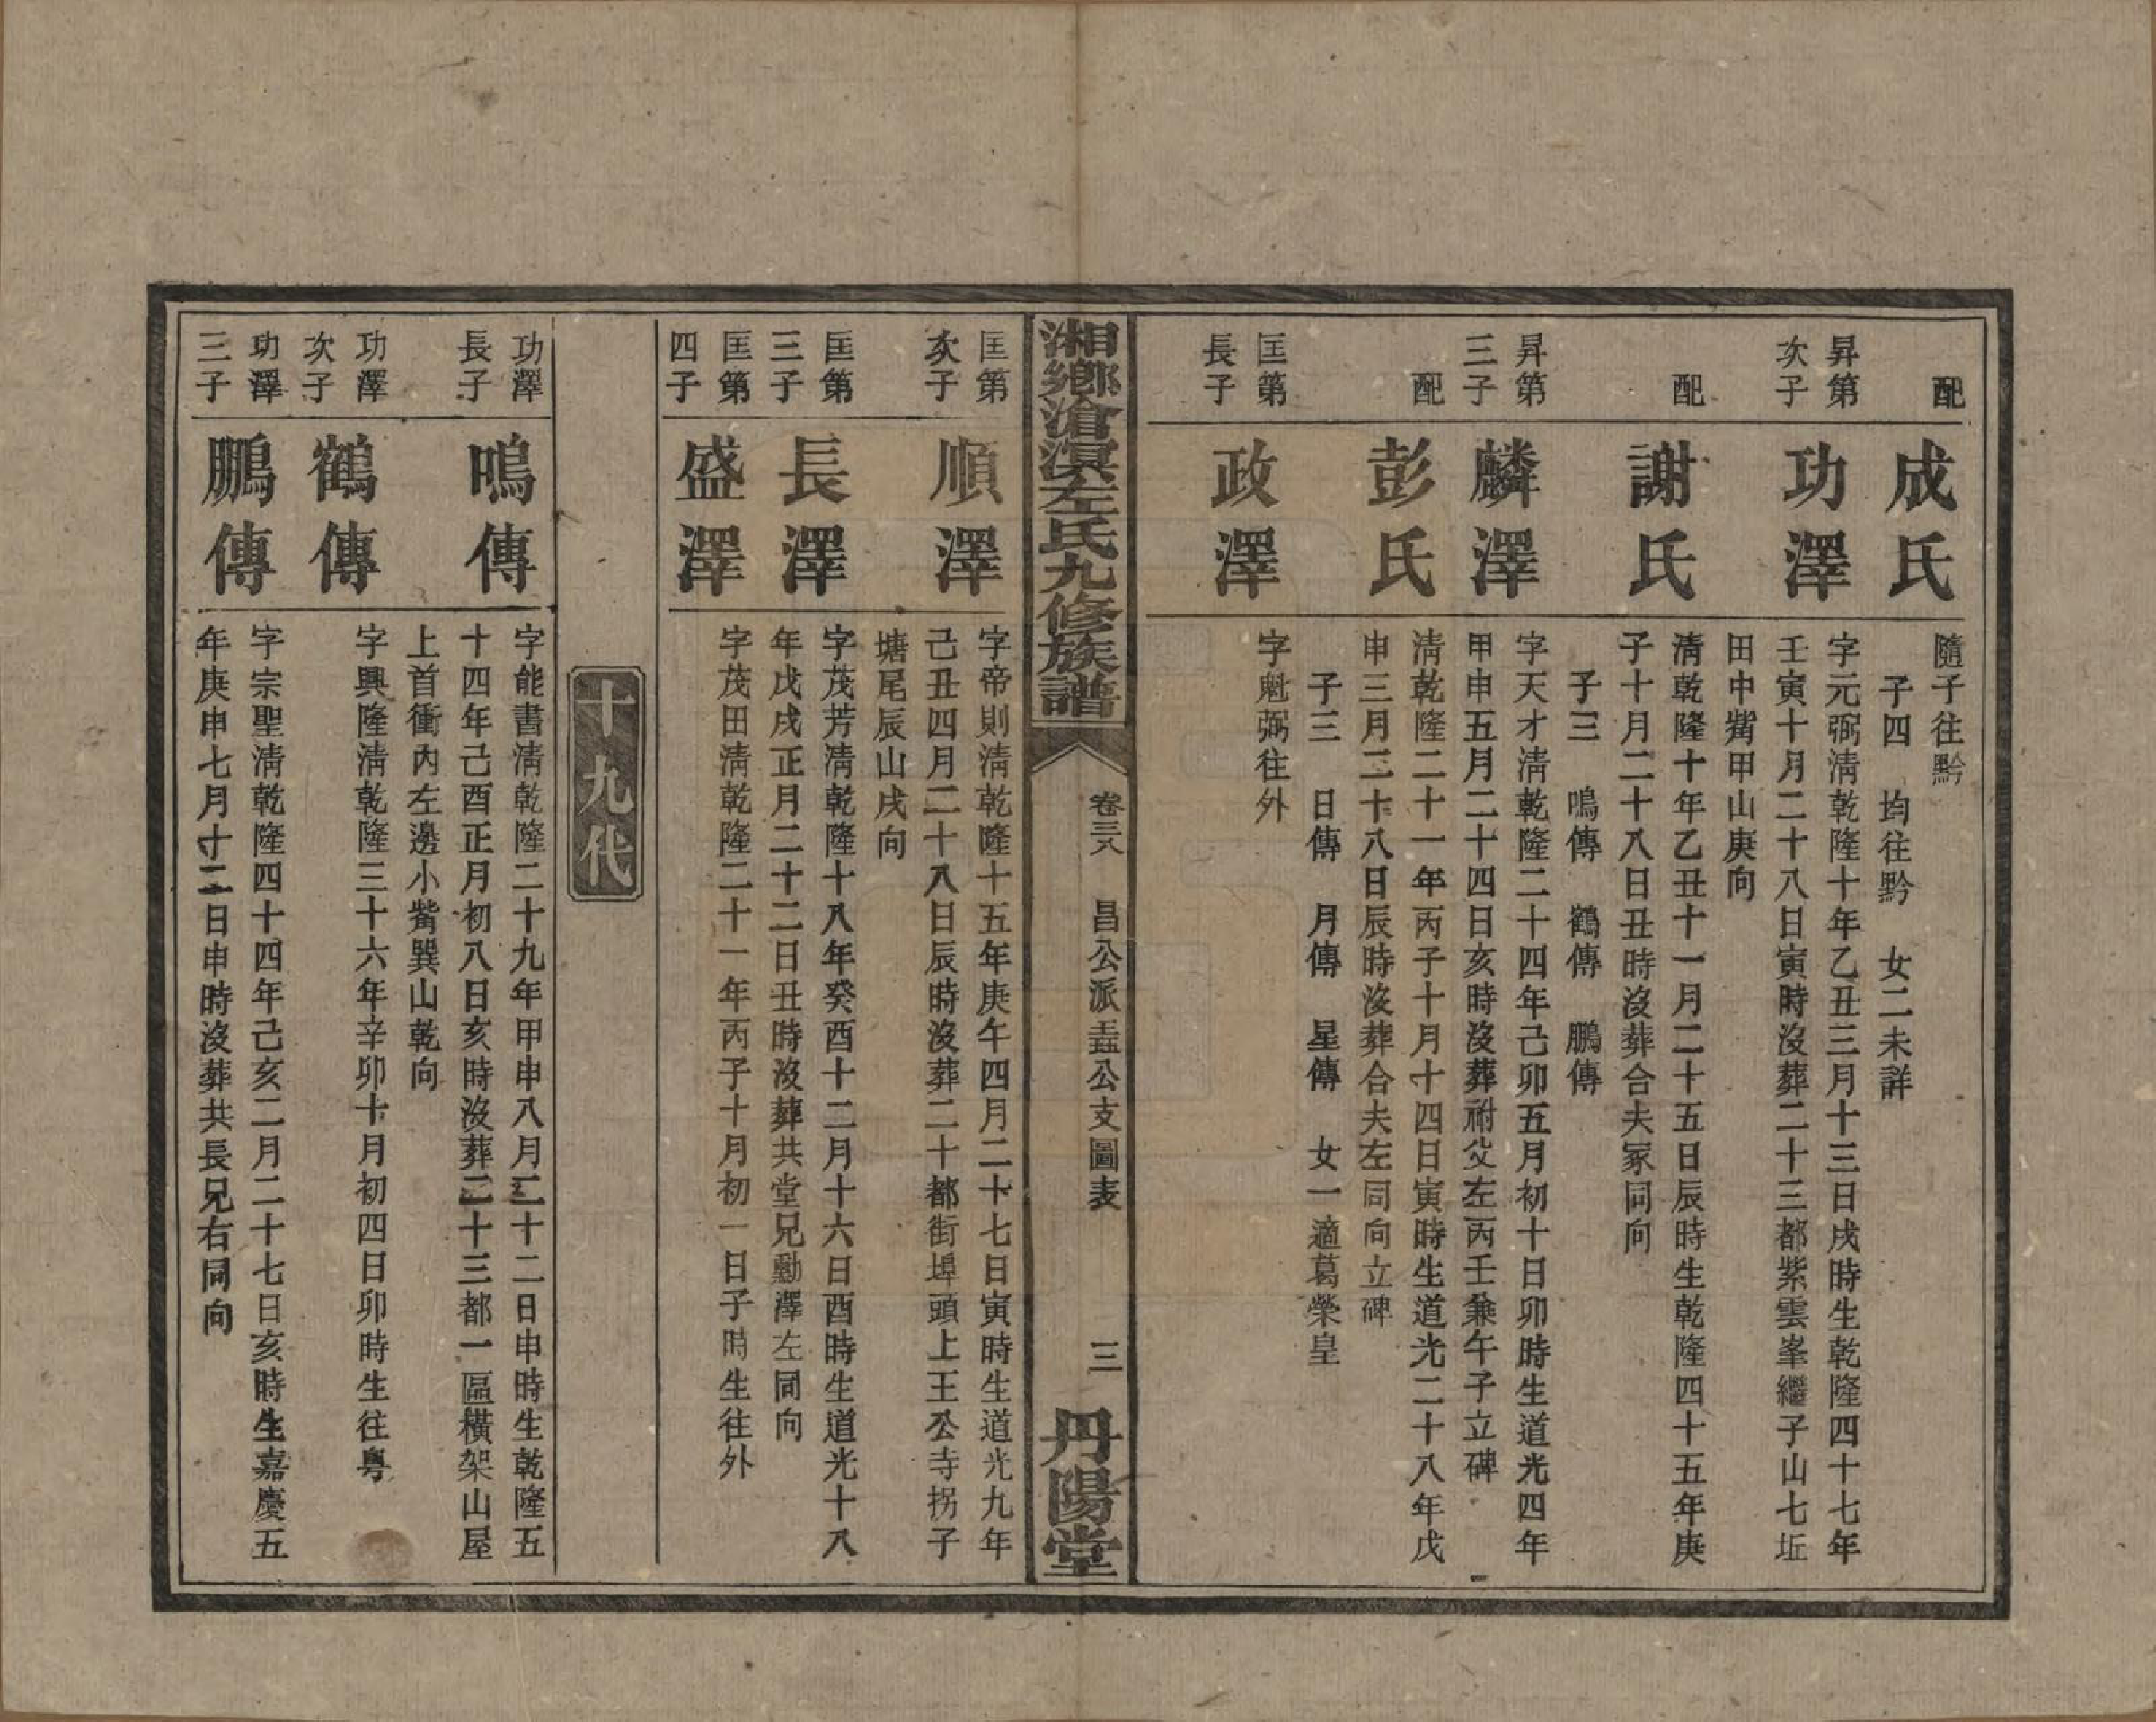 配
成氏
隨子往黔
子四　均往黔　女二未詳
昇第
次子
功澤
字元弼淸乾隆十年乙丑三月十三日戌時生乾隆四十七年
壬寅十月二十八日寅時沒葬二十三都紫雲峯繼子山七坵
田中觜甲山庚向
配
謝氏
淸乾隆十年乙丑十一月二十五日辰時生乾隆四十五年庚
子十月二十八日丑時沒葬合夫冢同向
子三　鳴傳　鶴傳　鵬傳
昇第
三子
麟澤
字天才淸乾隆二十四年己卯五月初十日卯時生道光四年
甲申五月二十四日亥時沒葬祔父左丙壬兼午子立碑
配
彭氏
淸乾隆二十一年丙子十月十四日寅時生道光二十八年戊
申三月二十八日辰時沒葬合夫左同向立碑
子三　日傳　月傳　星傳　女一適葛榮皇
匡第
長子
政澤
字魁弼往外
湘鄉滄溟左氏九修族譜
卷三八　昌公派盂公支圖表
三
丹陽堂
匡第
次子
順澤
字帝則淸乾隆十五年庚午四月二十七日寅時生道光九年
己丑四月二十八日辰時沒葬二十都街埠頭上王公寺拐子
塘尾辰山戌向
匡第
三子
長澤
字茂芳淸乾隆十八年癸酉十二月十六日酉時生道光十八
年戊戌正月二十二日丑時沒葬共堂兄勳澤左同向
匡第
四子
盛澤
字茂田淸乾隆二十一年丙子十月初一日子時生往外
十九代
功澤
長子
鳴傳
字能書淸乾隆二十九年甲申八月二十二日申時生乾隆五
十四年己酉正月初八日亥時沒葬二十三都一區橫架山屋
上首衝內左邊小觜巽山乾向
功澤
次子
鶴傳
字興隆淸乾隆三十六年辛卯十月初四日卯時生往粵
功澤
三子
鵬傳
字宗聖淸乾隆四十四年己亥二月二十七日亥時生嘉慶五
年庚申七月十二日申時沒葬共長兄右同向